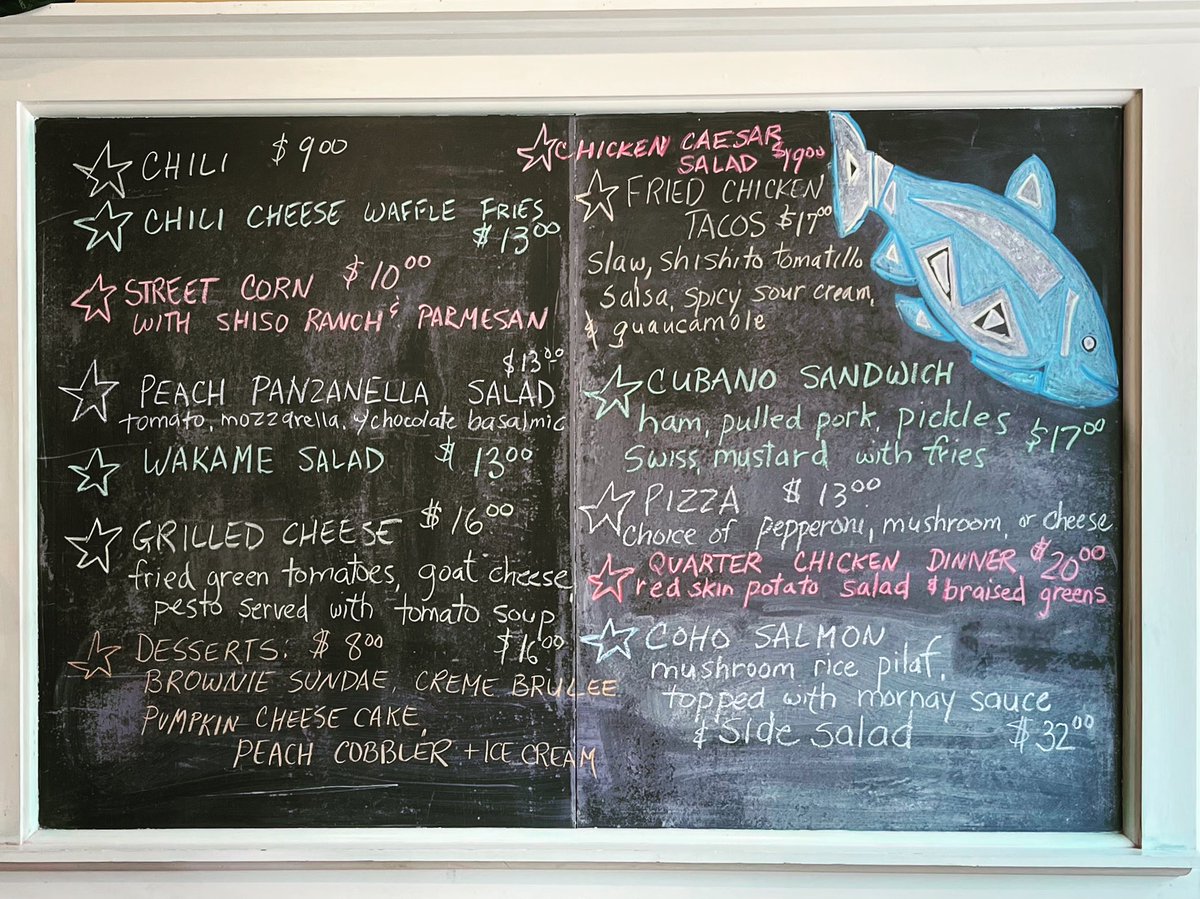 CHILI $9.00
CHILI CHEESE WAFFLE FRIES
$13.00
STREET CORN $10.00
WITH SHISO RANCH & PARMESAN
$13.00
PEACH PANZANELLA SALAD
tomato, mozzarella, y chocolate basalmic
WAKAME SALAD $13.00
GRILLED CHEESE $16.00
fried green tomatoes, goat cheese
pesto served with tomato soup
$16.00
DESSERTS: $8.00
BROWNIE SUNDAE, CREME BRULEE
PUMPKIN CHEESE CAKE,
PEACH COBBLER + ICE CREAM
CHICKEN CAESAR
SALAD $19.00
FRIED CHICKEN
TACOS $17.00
slaw, shishito tomatillo
salsa, spicy sour cream,
& guaucamole
CUBANO SANDWICH
ham, pulled pork, pickles
$17.00
swiss, mustard with fries
PIZZA $13.00
choice of pepperoni, mushroom, or cheese
QUARTER CHICKEN DINNER $20.00
red skin potato salad & braised greens
COHO SALMON
mushroom rice pilaf,
topped with mornay sauce
& side salad $32.00